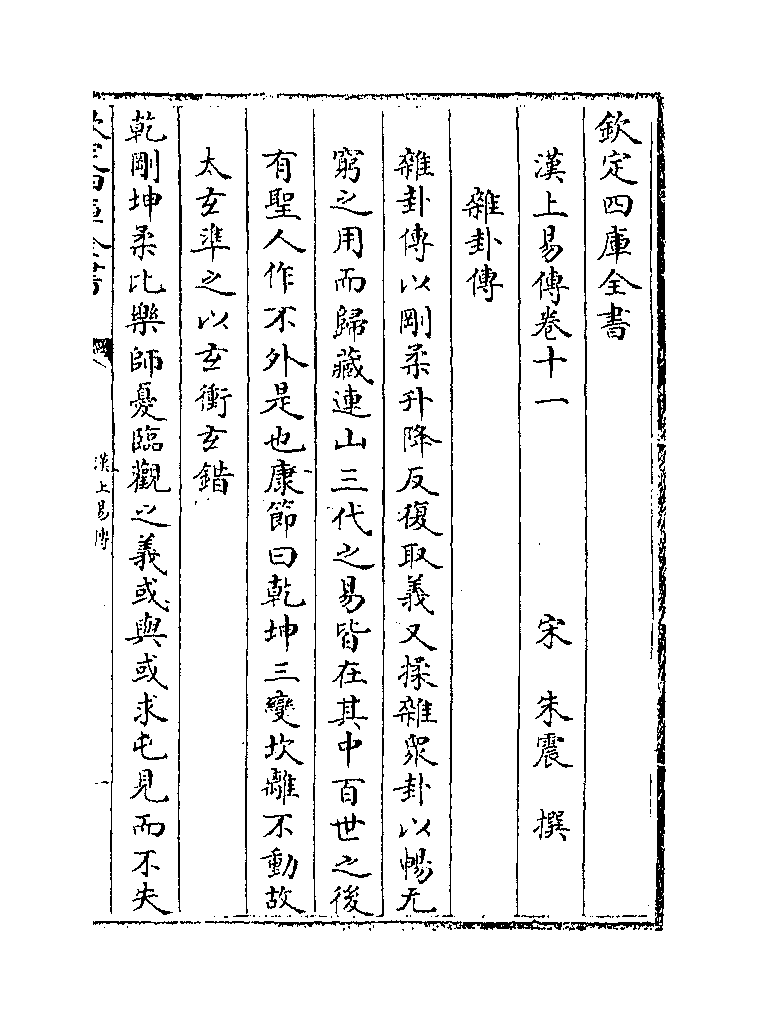 欽定四庫全書
漢上易傳卷十一　宋　朱震　撰
雜卦傳
雜卦傳以剛柔升降反復取義又揉雜衆卦以暢无
窮之用而歸藏連山三代之易皆在其中百世之後
有聖人作不外是也康節曰乾坤三變坎離不動故
太玄準之以玄衝玄錯
乾剛坤柔比樂師憂臨觀之義或與或求屯見而不失
欽定四庫全書
漢上易傳
一